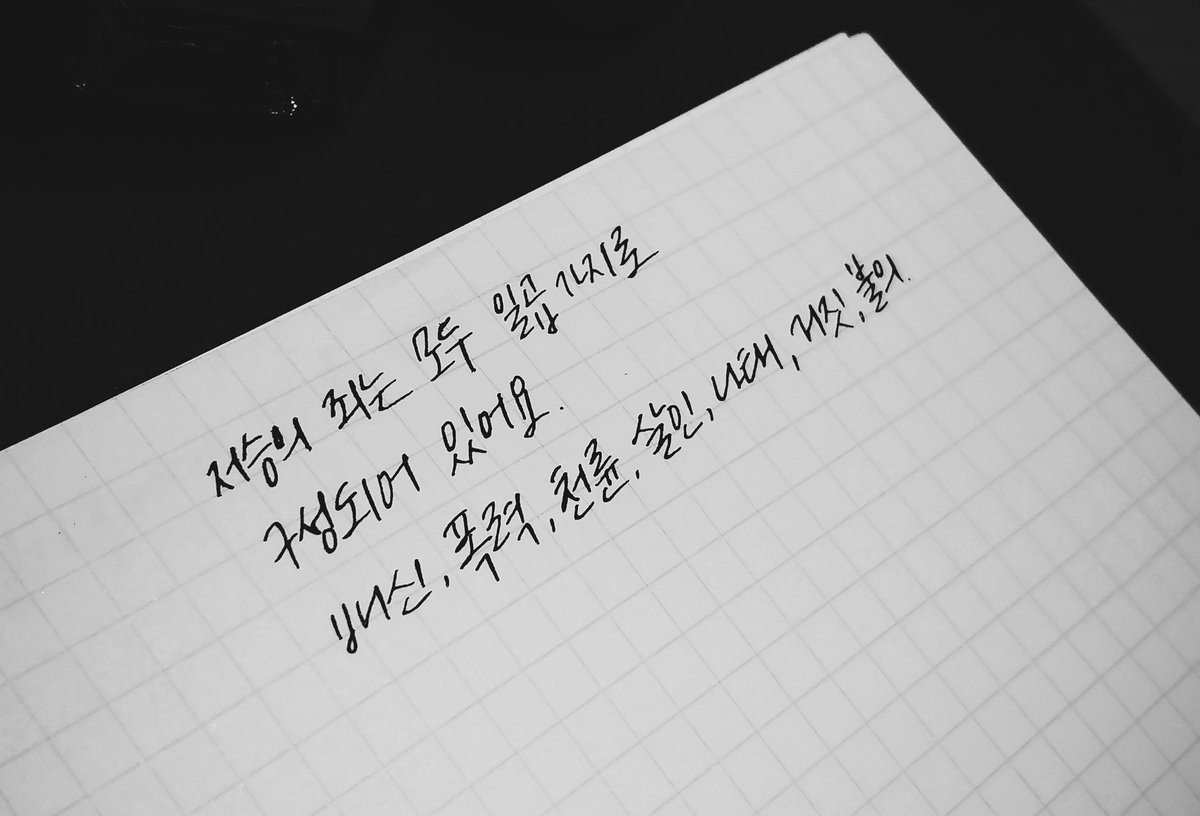 저승의 죄는 모두 일곱 가지로
구성되어 있어요.
배신, 폭력, 천륜, 살인, 나태, 거짓, 불의.